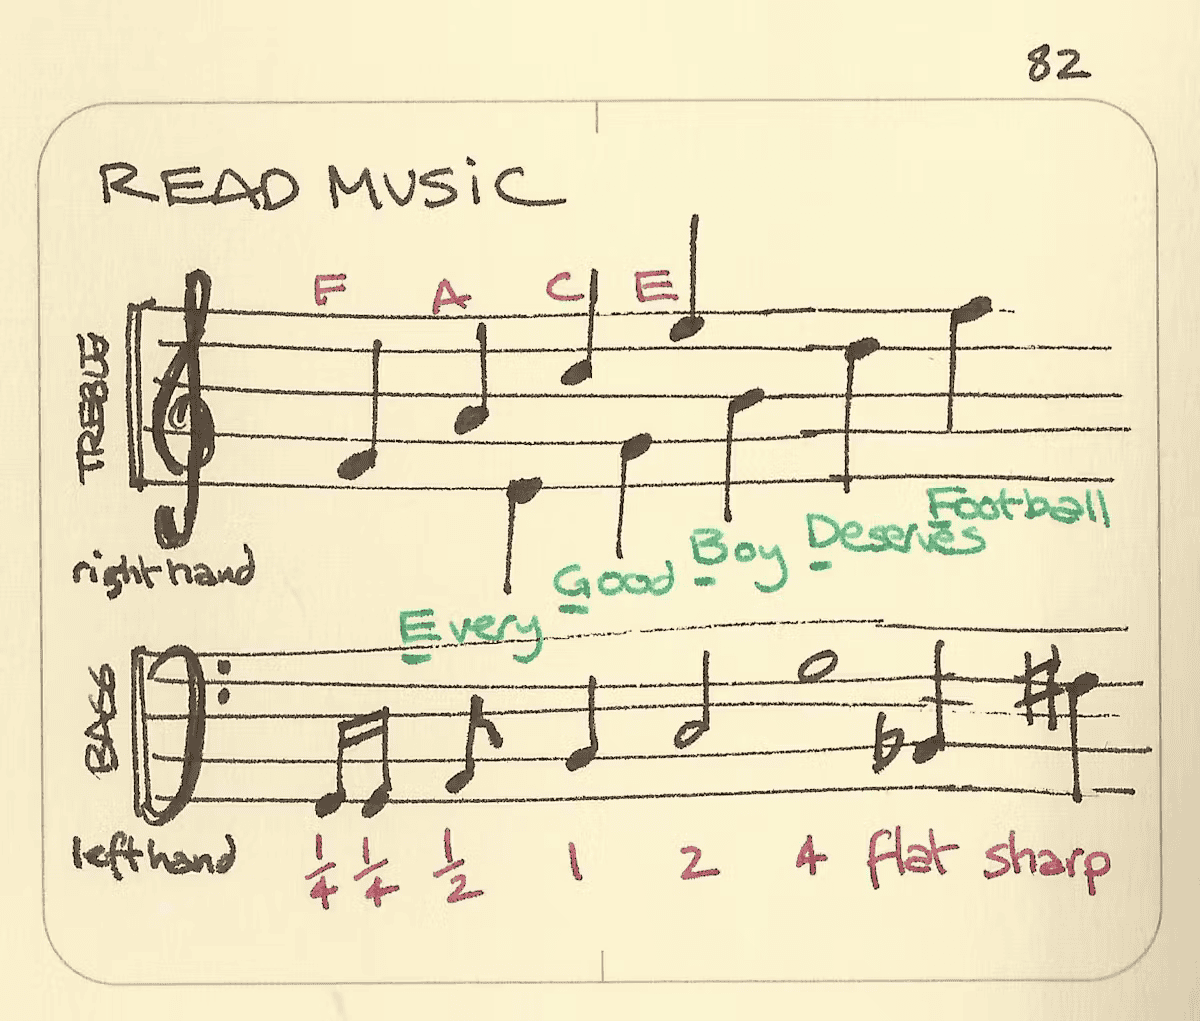 82
READ MUSIC
F A C E
TREBLE
right hand
Every Good Boy Deserves Football
BASS
left hand
1/4 1/4 1/2 1 2 4 flat sharp